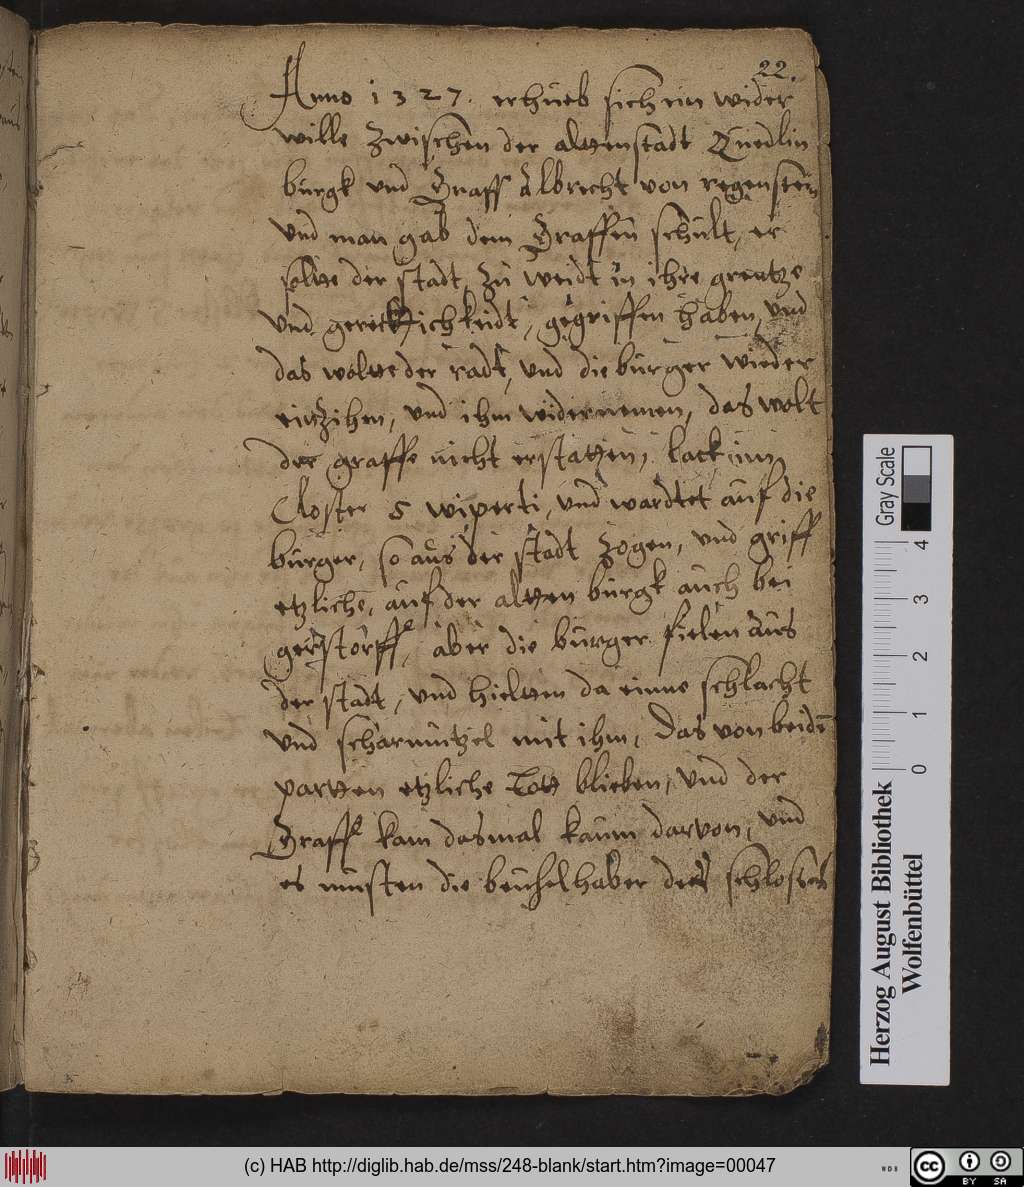 22.
Anno 1327. erhueb sich ein wider
wille zwischen der altenstadt Quedlin
burgk und Graff Albrecht von regenstein
und man gab dem Graffen schult, er
solte der stadt, zu weidt in ihre grentze
und gerechtichkeidt, gegriffen haben, und
das wolte der radt, und die burger wieder
einzihen, und ihm widernemen, das wolt
der graffe nicht erstatten, lack im
Closter S wiperti, und wardtet auf die
burger, so aus der stadt zogen, und griff
etzliche, auf der alten burgk auch bei
gerstorff, aber die burger fielen aus
der stadt, und hielten da einne schlacht
und scharmützel mit ihm, das von beiden
parten etzliche tott blieben, und der
Graffe kam dasmal kaum darvon, und
es musten die beuhelhaber des schlosses
Herzog August Bibliothek
Wolfenbüttel
Gray Scale
0 1 2 3 4
(c) HAB http://diglib.hab.de/mss/248-blank/start.htm?image=00047
WDB
cc BY SA